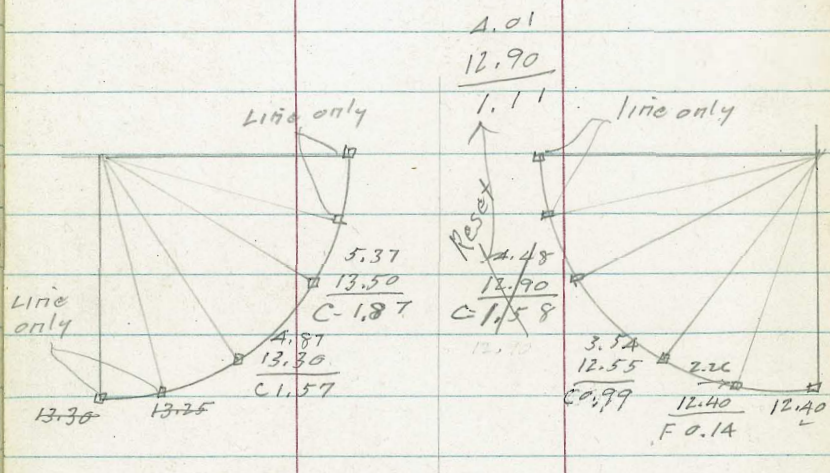 4.01
12.90
1.11
Line only
line only
Reset
5.37
13.50
C-1.87
4.48
12.90
C=1.58
Line
only
4.87
13.30
C1.57
3.54
12.55
C0.99
2.26
12.40
F 0.14
13.30
13.25
12.40